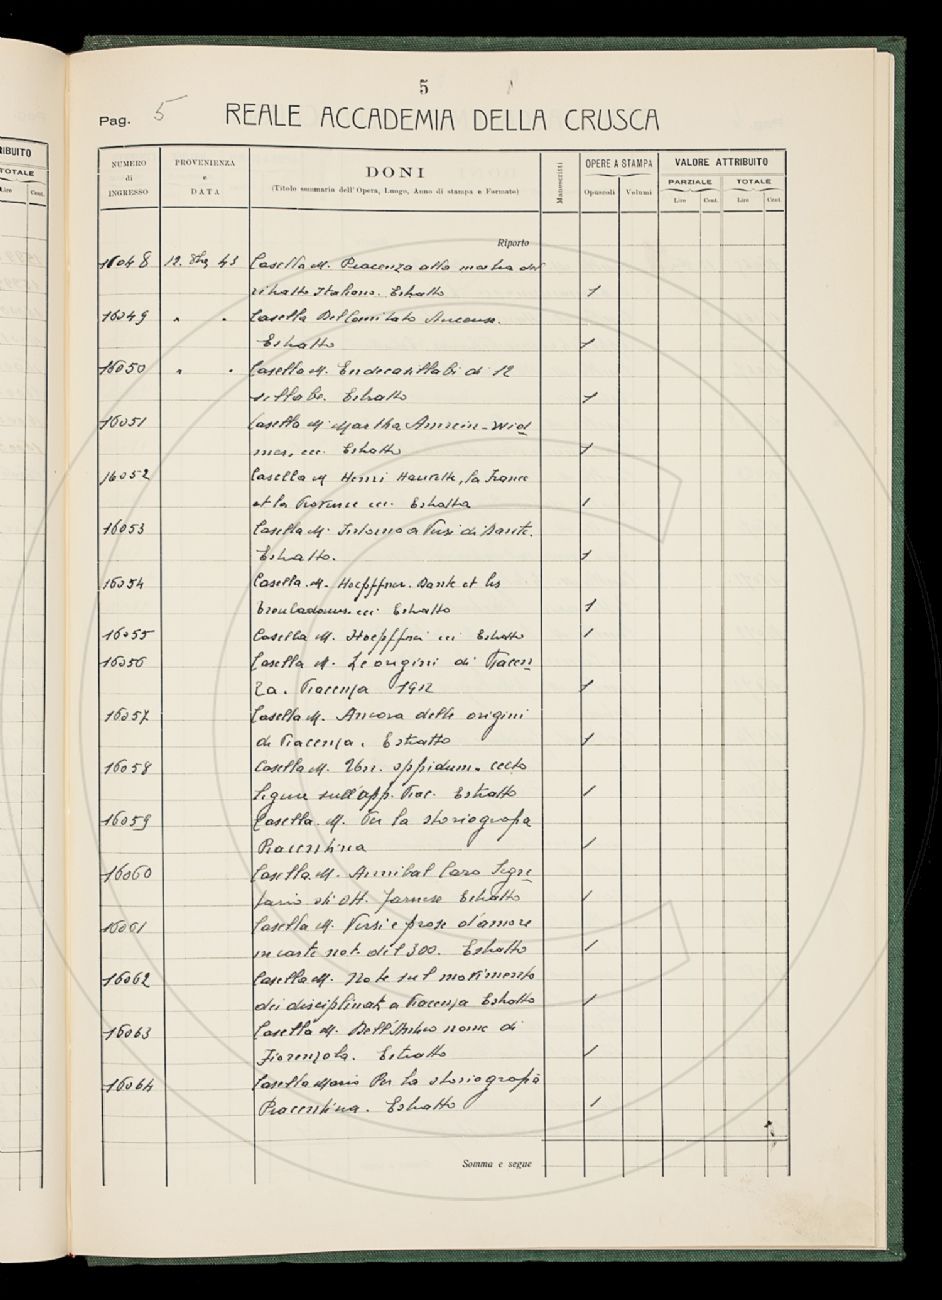 RIBUITO
TOTALE
Lire Cent.
5
Pag. 5 REALE ACCADEMIA DELLA CRUSCA
NUMERO di INGRESSO
PROVENIENZA e DATA
DONI
(Titolo sommario dell'Opera, Luogo, Anno di stampa e Formato)
Manoscritti
OPERE A STAMPA
Opuscoli Volumi
VALORE ATTRIBUITO
PARZIALE TOTALE
Lire Cent. Lire Cent.
Riporto
16048 12. 43 Casella M. Piacenza alla mostra del
ritratto Italiano. Estratto 1
16049 " " Casella Del Comitato
Estratto 1
16050 " " Casella M. Endecasillabi di 12
sillabe. Estratto 1
16051 Casella M. Martha Amrein-Wid
mer, ecc. Estratto 1
16052 Casella M. Henri Hauvette, la France
et la Provence ecc. Estratto 1
16053 Casella M. Intorno a Versi di Dante.
Estratto. 1
16054 Casella. M. Hoepffner. Dante et les
troubadours. ecc. Estratto 1
16055 Casella M. Hoepffner ecc Estratto 1
16056 Casella M. Le origini di Piacen
za. Piacenza 1912 1
16057 Casella M. Ancora delle origini
di Piacenza. Estratto 1
16058 Casella M. Un. oppidum. celto
ligure sull'app. Piac. Estratto 1
16059 Casella. M. Per la storiografia
Piacentina 1
16060 Casella. M. Annibal Caro Segre
tario di Ott. Farnese Estratto 1
16061 Casella M. Versi e prose d'amore
in carte not. del 300. Estratto 1
16062 Casella M. Note sul movimento
dei disciplinati a Piacenza Estratto 1
16063 Casella M. Dell'antico nome di
Fiorenzola. Estratto 1
16064 Casella Mario Per la storiografia
Piacentina. Estratto 1
Somma e segue